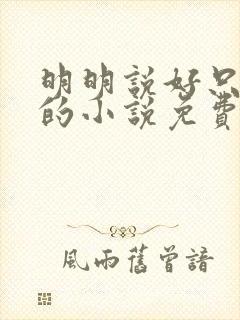 明明説好只
的小説免費
風雨舊曾諳